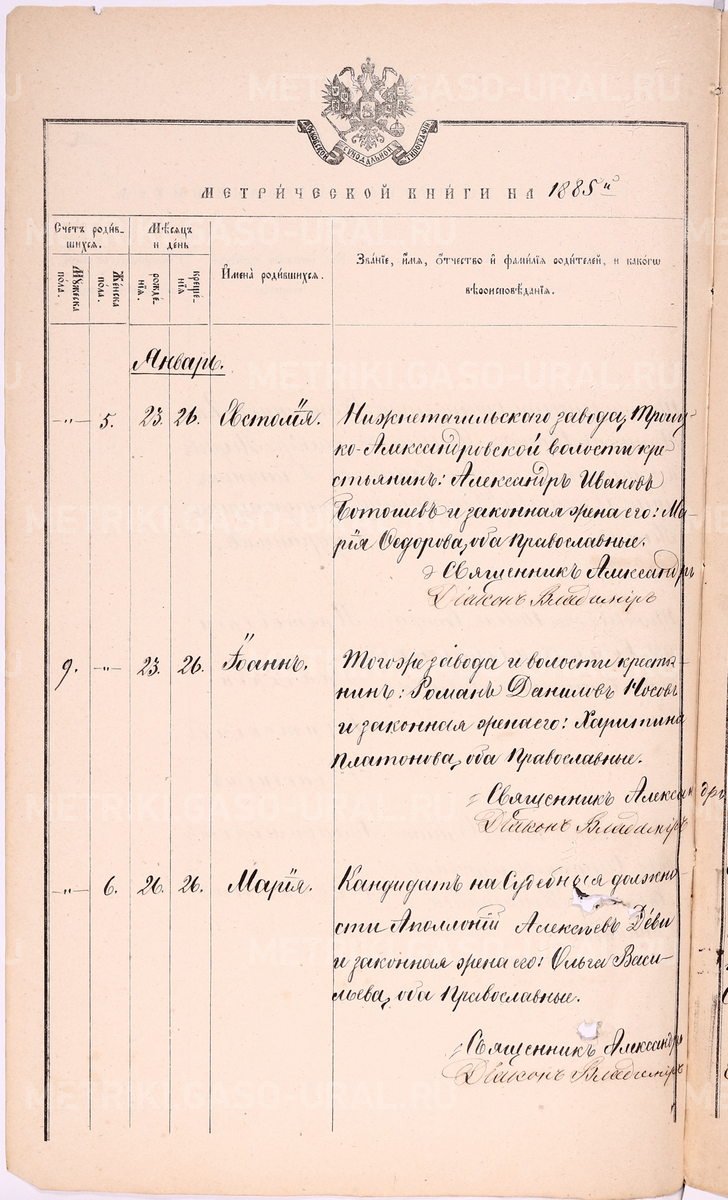 МОСКОВСКОЙ СѴНОДАЛЬНОЙ ТИПОГРАФІИ
МЕТРИ́ЧЕСКОЙ КНИ́ГИ НА 1885 й
Счетъ роди́в-
шихся.
Мѣ́сяцъ
и де́нь
И҆мена̀ роди́вшихся.
Зва́нїе, и҆́мя, ѻ҆́тчество и҆ фами́лїя роди́телей, и҆ како́гѡ
вѣроисповѣ́данїя.
Мꙋ́жеска
пола.
Же́нска
по́ла.
рожде́-
нїя.
креще́-
нїя
Январь.
—"— 5. 23. 26. Евстолія. Нижнетагильскаго завода, Троиц-
ко-Александровской волости кре-
стьянинъ: Александръ Ивановъ
Ботошевъ и законная жена его: Ма-
рія Ѳедорова, оба православные.
Священникъ Александръ
Діаконъ Владиміръ
9. —"— 23. 26. Іоаннъ. Тогоже завода и волости крестья-
нинъ: Романъ Даниловъ Носовъ
и законная жена его: Харитина
Платонова, оба Православные.
Священникъ Александръ
Діаконъ Владиміръ
—"— 6. 26. 26. Марія. Кандидатъ на Судебныя должно-
сти Аполлоній Алексѣевъ Деви
и законная жена его: Ольга Васи-
льева, оба Православные.
Священникъ Александръ
Діаконъ Владиміръ
METRIKI.GASO-URAL.RU